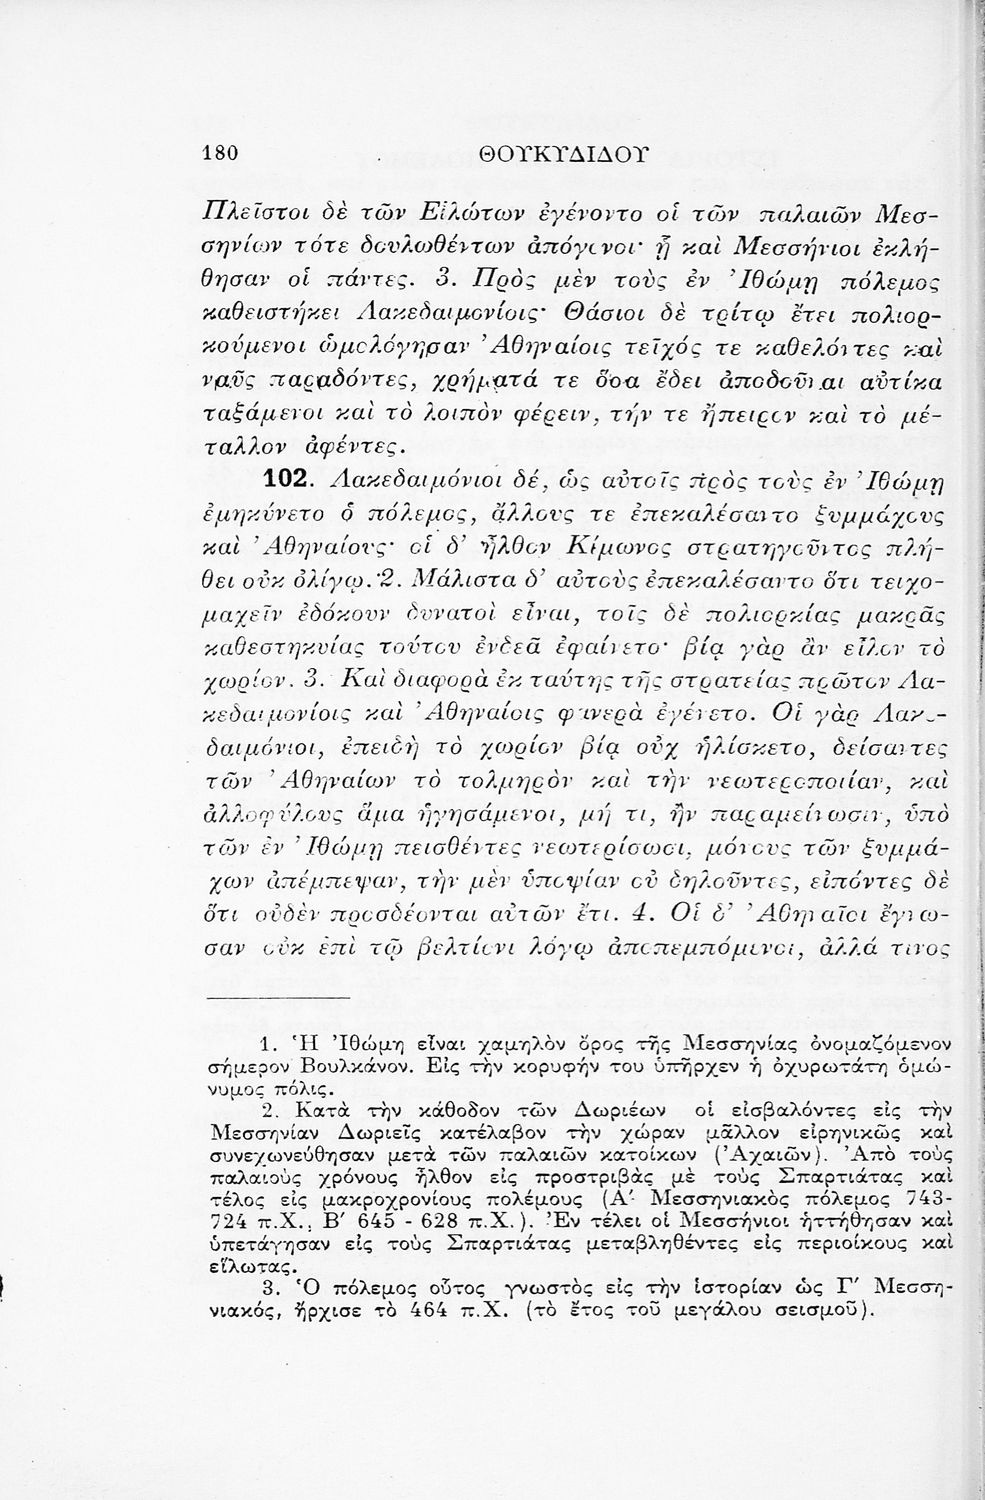 180
ΘΟΥΚΥΔΙΔΟΥ
Πλεῖστοι δὲ τῶν Εἱλώτων ἐγένοντο οἱ τῶν παλαιῶν Μεσ-
σηνίων τότε δουλωθέντων ἀπόγονοι· ᾗ καὶ Μεσσήνιοι ἐκλή-
θησαν οἱ πάντες. 3. Πρὸς μὲν τοὺς ἐν Ἰθώμῃ πόλεμος
καθειστήκει Λακεδαιμονίοις· Θάσιοι δὲ τρίτῳ ἔτει πολιορ-
κούμενοι ὡμολόγησαν Ἀθηναίοις τεῖχός τε καθελόντες καὶ
ναῦς παραδόντες, χρήματά τε ὅσα ἔδει ἀποδοῦναι αὐτίκα
ταξάμενοι καὶ τὸ λοιπὸν φέρειν, τήν τε ἤπειρον καὶ τὸ μέ-
ταλλον ἀφέντες.
102. Λακεδαιμόνιοι δέ, ὡς αὐτοῖς πρὸς τοὺς ἐν Ἰθώμῃ
ἐμηκύνετο ὁ πόλεμος, ἄλλους τε ἐπεκαλέσαντο ξυμμάχους
καὶ Ἀθηναίους· οἱ δ’ ἦλθον Κίμωνος στρατηγοῦντος πλή-
θει οὐκ ὀλίγῳ. 2. Μάλιστα δ’ αὐτοὺς ἐπεκαλέσαντο ὅτι τειχο-
μαχεῖν ἐδόκουν δυνατοὶ εἶναι, τοῖς δὲ πολιορκίας μακρᾶς
καθεστηκυίας τούτου ἐνδεᾶ ἐφαίνετο· βίᾳ γὰρ ἂν εἷλον τὸ
χωρίον. 3. Καὶ διαφορὰ ἐκ ταύτης τῆς στρατείας πρῶτον Λα-
κεδαιμονίοις καὶ Ἀθηναίοις φανερὰ ἐγένετο. Οἱ γὰρ Λακε-
δαιμόνιοι, ἐπειδὴ τὸ χωρίον βίᾳ οὐχ ἡλίσκετο, δείσαντες
τῶν Ἀθηναίων τὸ τολμηρὸν καὶ τὴν νεωτεροποιίαν, καὶ
ἀλλοφύλους ἅμα ἡγησάμενοι, μή τι, ἢν παραμείνωσιν, ὑπὸ
τῶν ἐν Ἰθώμῃ πεισθέντες νεωτερίσωσι, μόνους τῶν ξυμμά-
χων ἀπέμπεψαν, τὴν μὲν ὑποψίαν οὐ δηλοῦντες, εἰπόντες δὲ
ὅτι οὐδὲν προσδέονται αὐτῶν ἔτι. 4. Οἱ δ’ Ἀθηναῖοι ἔγνω-
σαν οὐκ ἐπὶ τῷ βελτίονι λόγῳ ἀποπεμπόμενοι, ἀλλά τινος
1. Ἡ Ἰθώμη εἶναι χαμηλὸν ὄρος τῆς Μεσσηνίας ὀνομαζόμενον
σήμερον Βουλκάνον. Εἰς τὴν κορυφήν του ὑπῆρχεν ἡ ὀχυρωτάτη ὁμώ-
νυμος πόλις.
2. Κατὰ τὴν κάθοδον τῶν Δωριέων οἱ εἰσβαλόντες εἰς τὴν
Μεσσηνίαν Δωριεῖς κατέλαβον τὴν χώραν μᾶλλον εἰρηνικῶς καὶ
συνεχωνεύθησαν μετὰ τῶν παλαιῶν κατοίκων (Ἀχαιῶν). Ἀπὸ τοὺς
παλαιοὺς χρόνους ἦλθον εἰς προστριβὰς μὲ τοὺς Σπαρτιάτας καὶ
τέλος εἰς μακροχρονίους πολέμους (Α΄ Μεσσηνιακὸς πόλεμος 743-
724 π.Χ., Β΄ 645 - 628 π.Χ.). Ἐν τέλει οἱ Μεσσήνιοι ἡττήθησαν καὶ
ὑπετάγησαν εἰς τοὺς Σπαρτιάτας μεταβληθέντες εἰς περιοίκους καὶ
εἵλωτας.
3. Ὁ πόλεμος οὗτος γνωστὸς εἰς τὴν ἱστορίαν ὡς Γ΄ Μεσση-
νιακός, ἤρχισε τὸ 464 π.Χ. (τὸ ἔτος τοῦ μεγάλου σεισμοῦ).